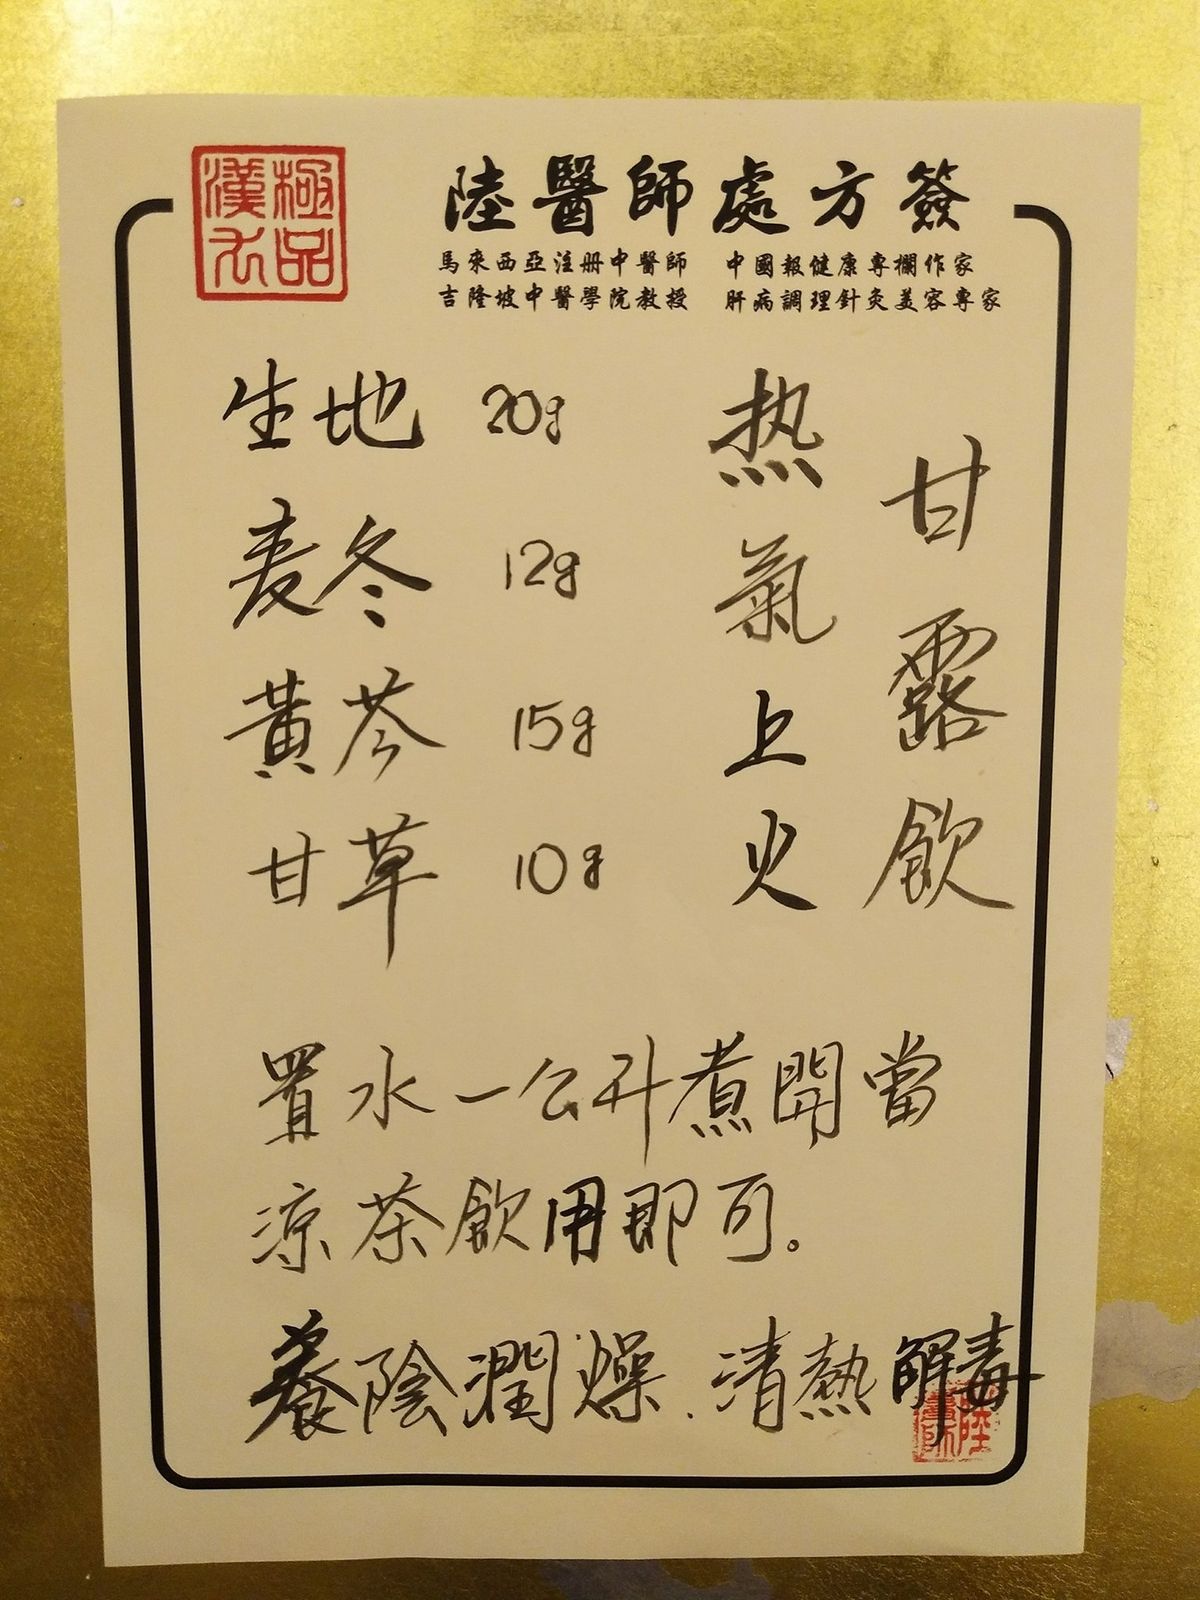 極品
漢方
陸醫師處方簽
馬來西亞注册中醫師 中國報健康專欄作家
吉隆坡中醫學院教授 肝病調理針灸美容專家
甘露飲
热氣上火
生地 20g
麦冬 12g
黃芩 15g
甘草 10g
置水一公升煮開當
涼茶飲用即可。
養陰潤燥.清熱解毒